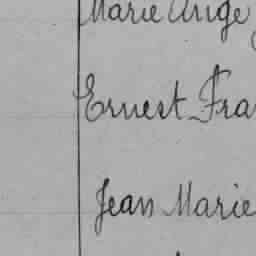 Marie Ange
Ernest Fra
Jean Marie